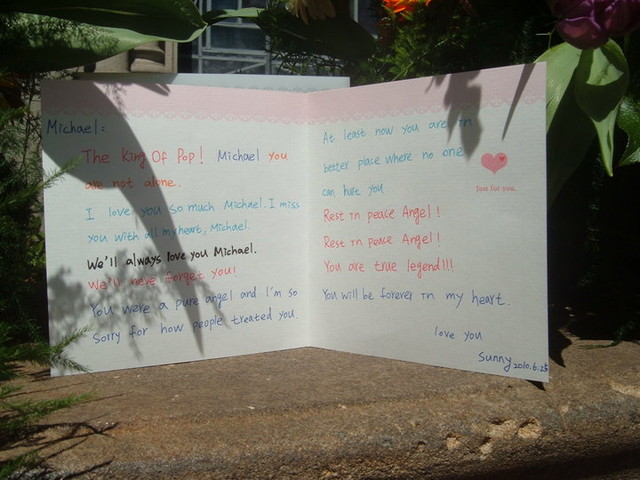 Michael:
The King Of Pop! Michael you
are not alone..
I love you so much Michael. I miss
you with all my heart, Michael.
We'll always love you Michael.
We'll never forget you!
You were a pure angel and I'm so
Sorry for how people treated you.
At least now you are in
better place where no one
can hurt you
Just for you.
Rest in peace Angel!
Rest in peace Angel!
You are true legend!!!
You will be forever in my heart.
love you
Sunny
2010.6.25